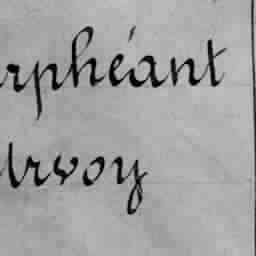 rphéant
Arvoy